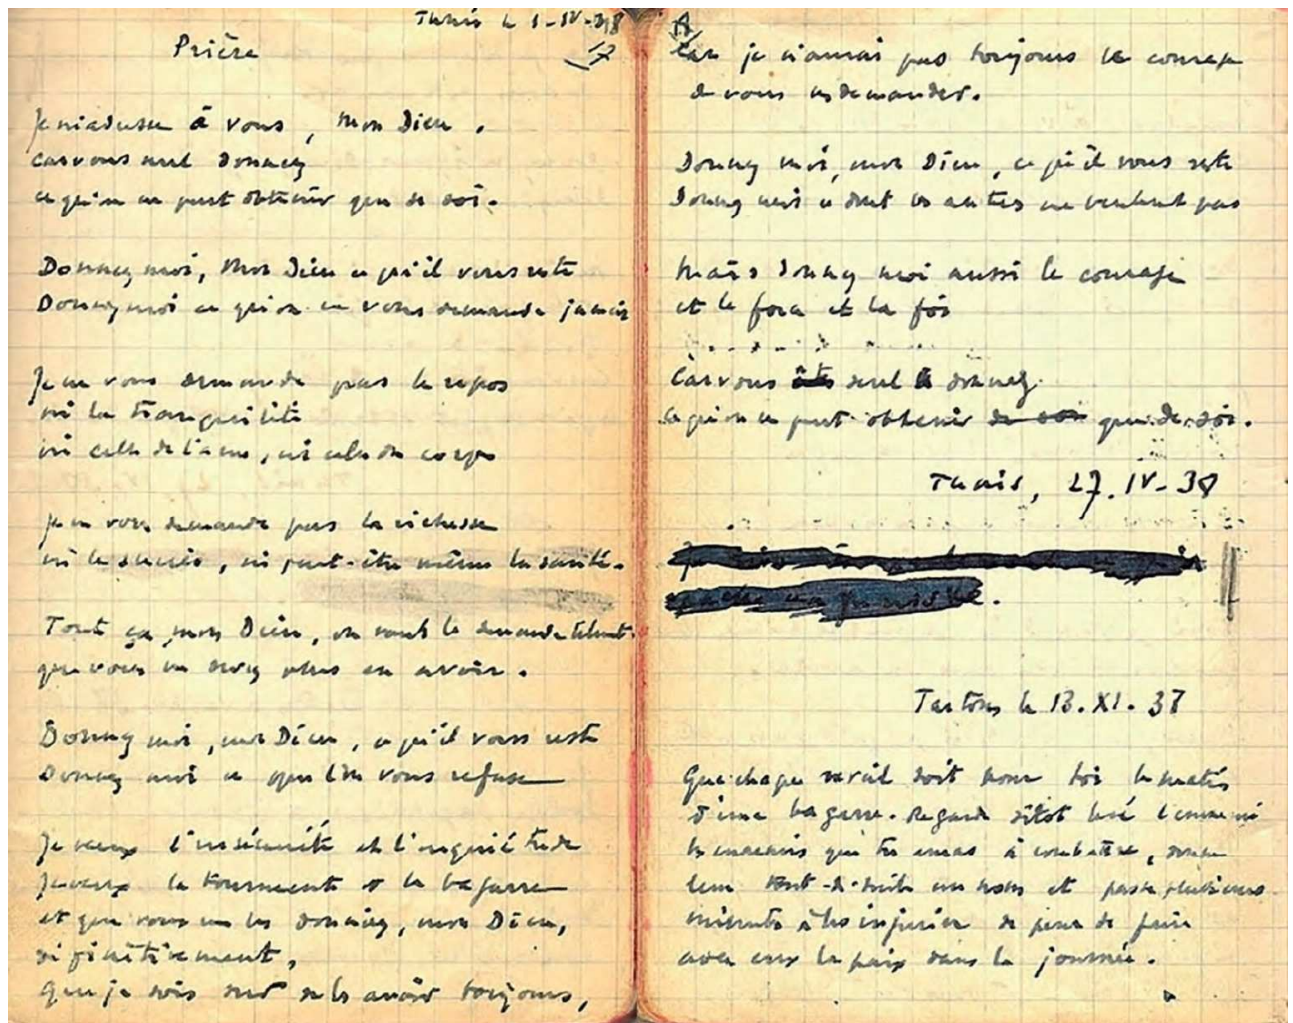 Tunis le 1-IV-38
17
Prière
Je m'adresse à vous, mon Dieu.
car vous seul donnez
ce qu'on ne peut obtenir que de soi.
Donnez moi, mon Dieu ce qu'il vous reste
Donnez moi ce qu'on ne vous demande jamais
Je ne vous demande pas le repos
ni la tranquilité
ni celle de l'ame, ni celle du corps
Je ne vous demande pas la richesse
ni le succès, ni peut-être même la santé.
Tout ça mon Dieu, on vous le demande telement
que vous ne devez plus en avoir.
Donnez moi, mon Dieu, ce qu'il vous reste
Donnez moi ce que l'on vous refuse
Je veux l'insécurité et l'inquiétude
Je veux la tourmente et la bagarre
et que vous me les donniez, mon Dieu,
définitivement,
que je sois sur de les avoir toujours,
Car je n'aurai pas toujours le courage
de vous les demander.
Donnez moi, mon Dieu, ce qu'il vous reste
Donnez moi ce dont les autres ne veulent pas
Mais donnez moi aussi le courage
et la force et la foi
Car vous êtes seul à donnez
ce qu'on ne peut obtenir de soi que de soi.
Tunis, 27.IV-38
Tartous le 13.XI.37
Que chaque réveil soit pour toi le matin
d'une bagarre. Regarde sitot levé l'ennemi
les ennemis que tu auras à combattre, donne
leur tout-de-suite un nom et passe plusieurs
minutes à les injurier de peur de faire
avec eux la paix dans la journée.